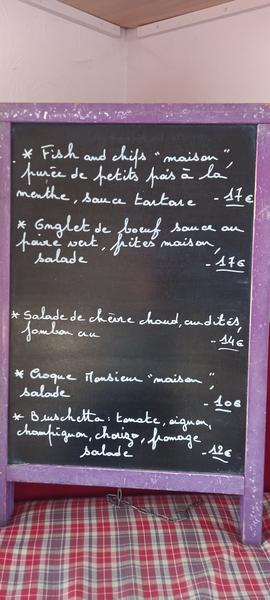 * Fish and chips "maison",
purée de petits pois à la
menthe, sauce tartare - 17€
* Onglet de boeuf sauce au
poivre vert, frites maison,
salade - 17€
* Salade de chèvre chaud, crudités,
jambon cru - 14€
* Croque Monsieur "maison",
salade - 10€
* Bruschetta : tomate, oignon,
champignon, chorizo, fromage
salade - 12€